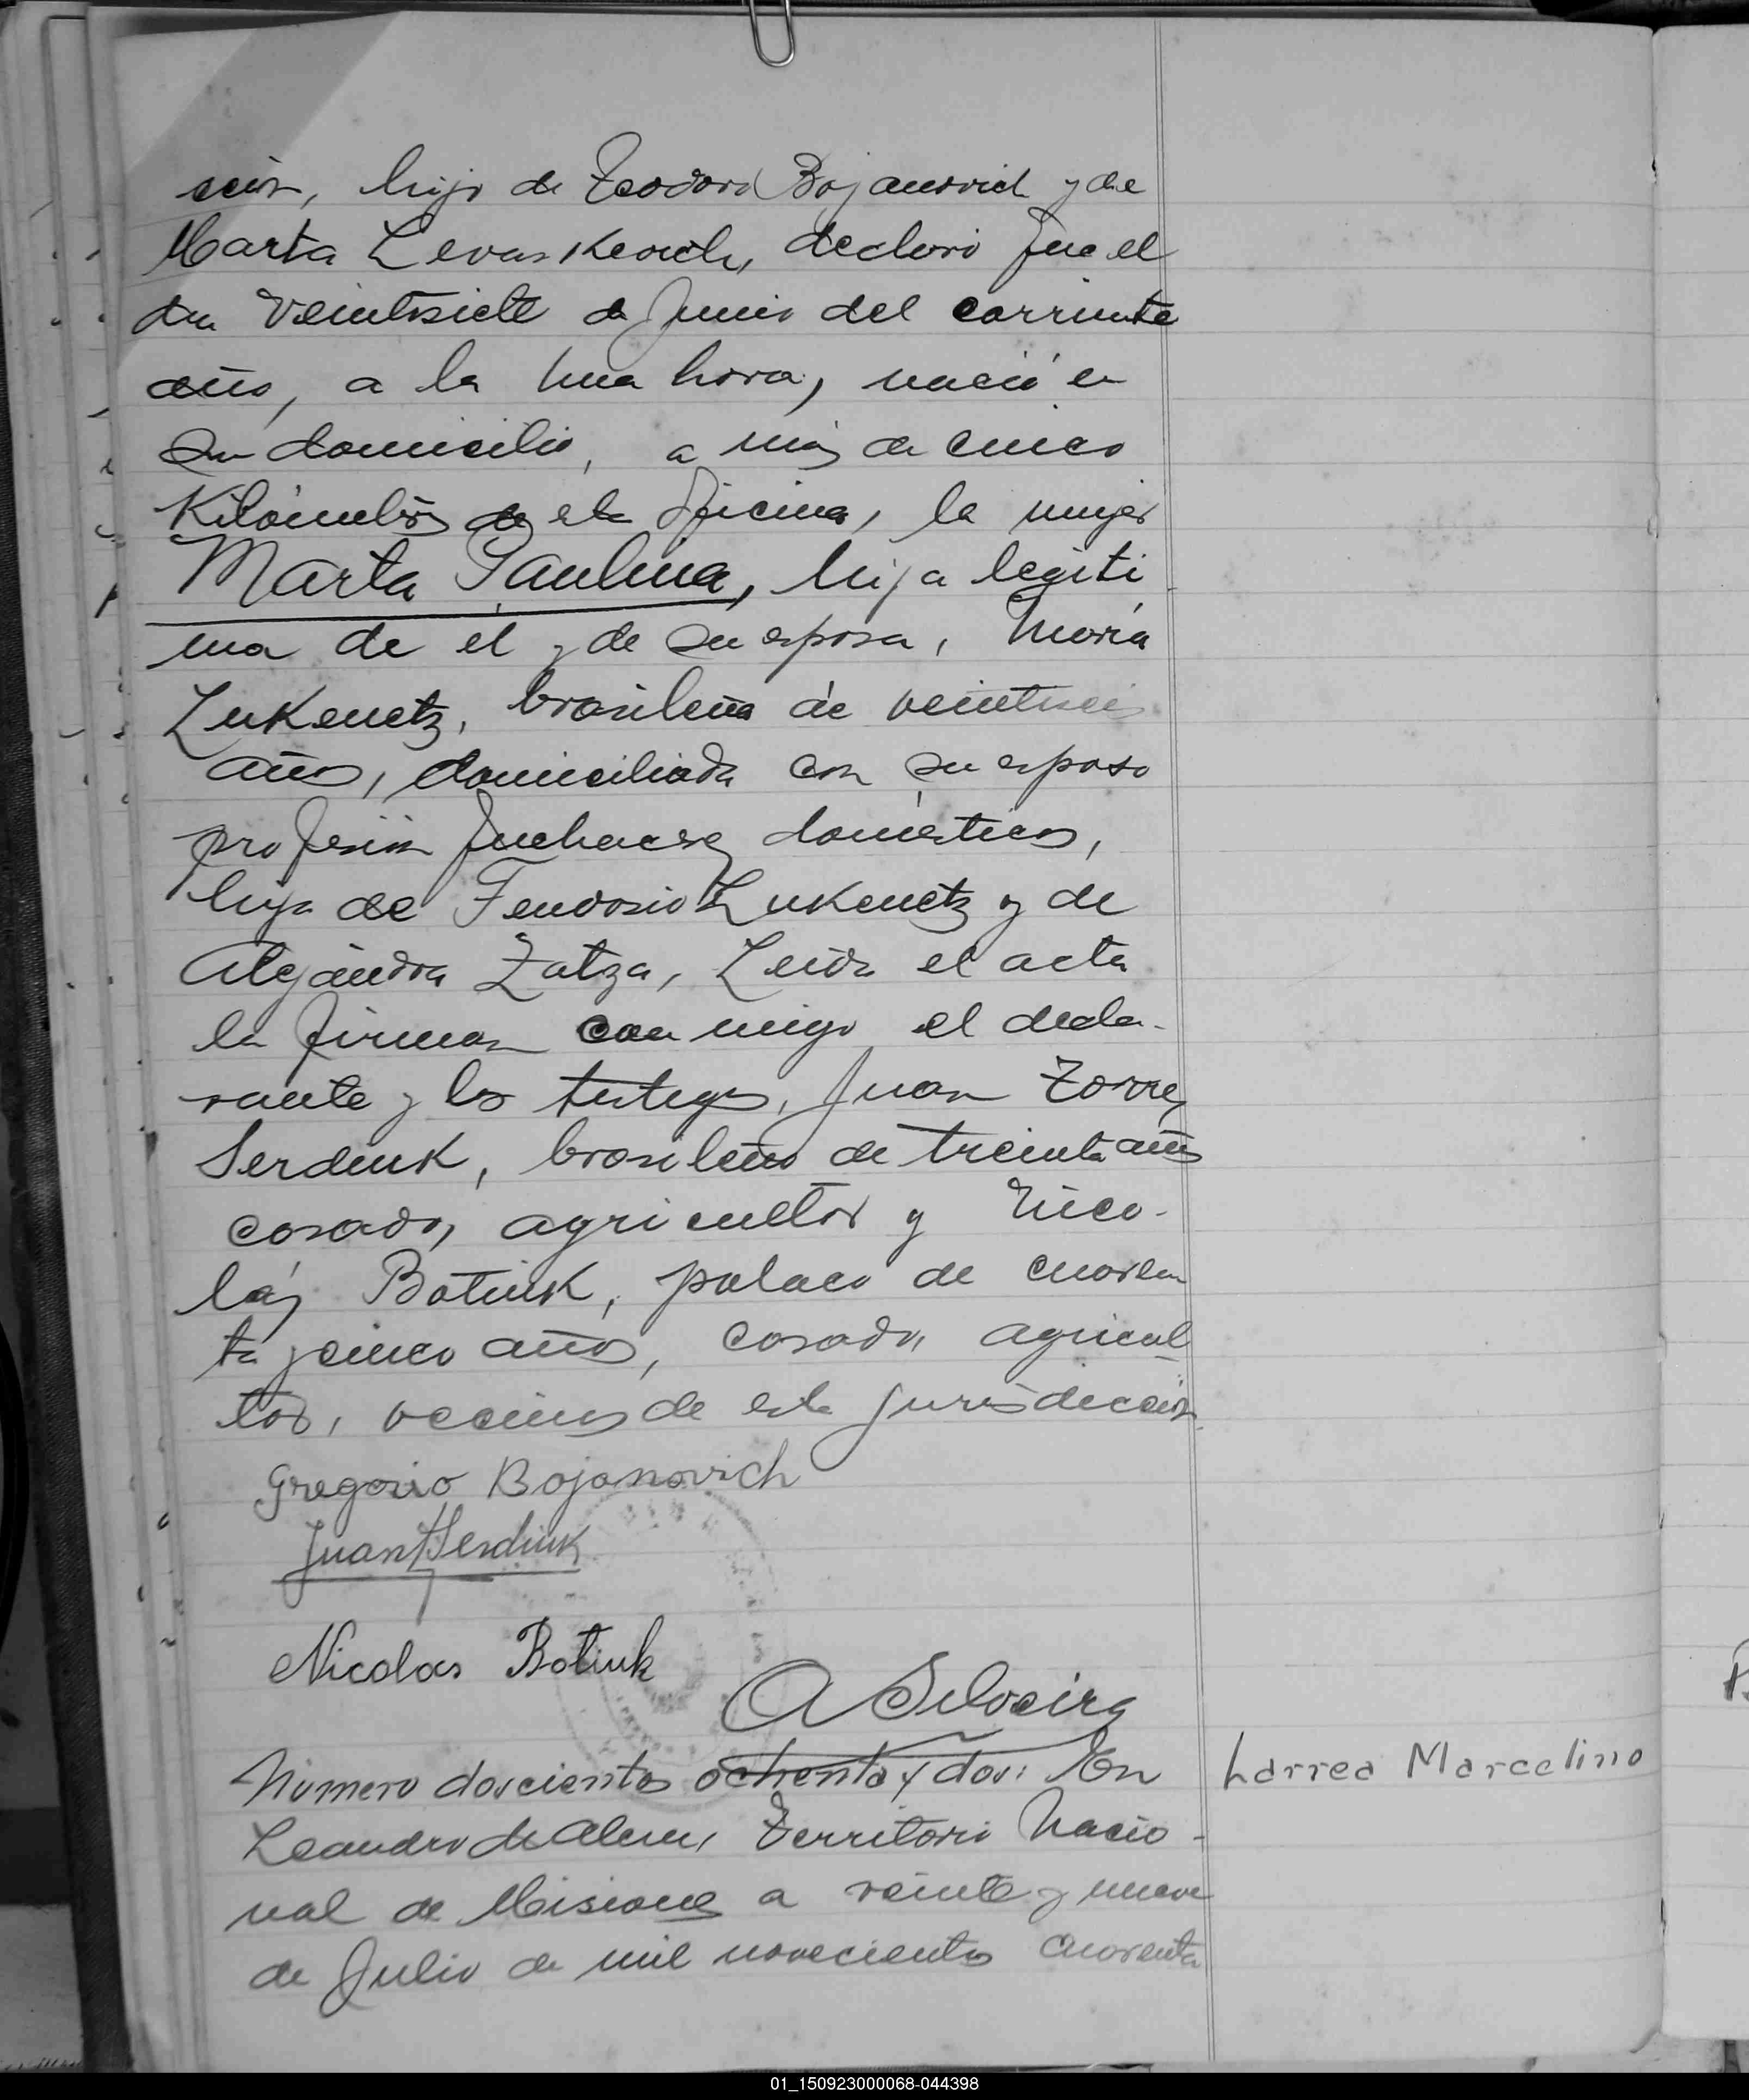 ción, hijo de Teodoro Bojanovich y de
Marta Levaskevich, declaró que el
dia veintisiete de Junio del corriente
año, a la una hora, nació en
su domicilio, a más de cinco
Kilómetros de esta oficina, la mujer
Marta Paulina, hija legiti
ma de el y de su esposa, María
Lukenetz, brasileña de veintiseis
años, domiciliada con su esposo
profesión quehaceres domésticos,
hija de Feodosio Lukenetz y de
Alejandra Zatza, Leida el acta
la firman con migo el decla-
rante y los testigos, Juan Torres
Serdiuk, brasileño de treinta años
casado, agricultor y Nico-
lás Botiuk, polaco de cuaren
ta y cinco años, casado, agricul
tor, vecinos de esta jurisdicción
Gregorio Bojanovich
Juan T Serdiuk
Nicolas Botiuk
A Silveira
Número doscientos ochenta y dos: En
Larrea Marcelino
Leandro de Alem, Territorio Nacio-
nal de Misiones a veinte y nueve
de Julio de mil novecientos cuarenta
01_150923000068-044398